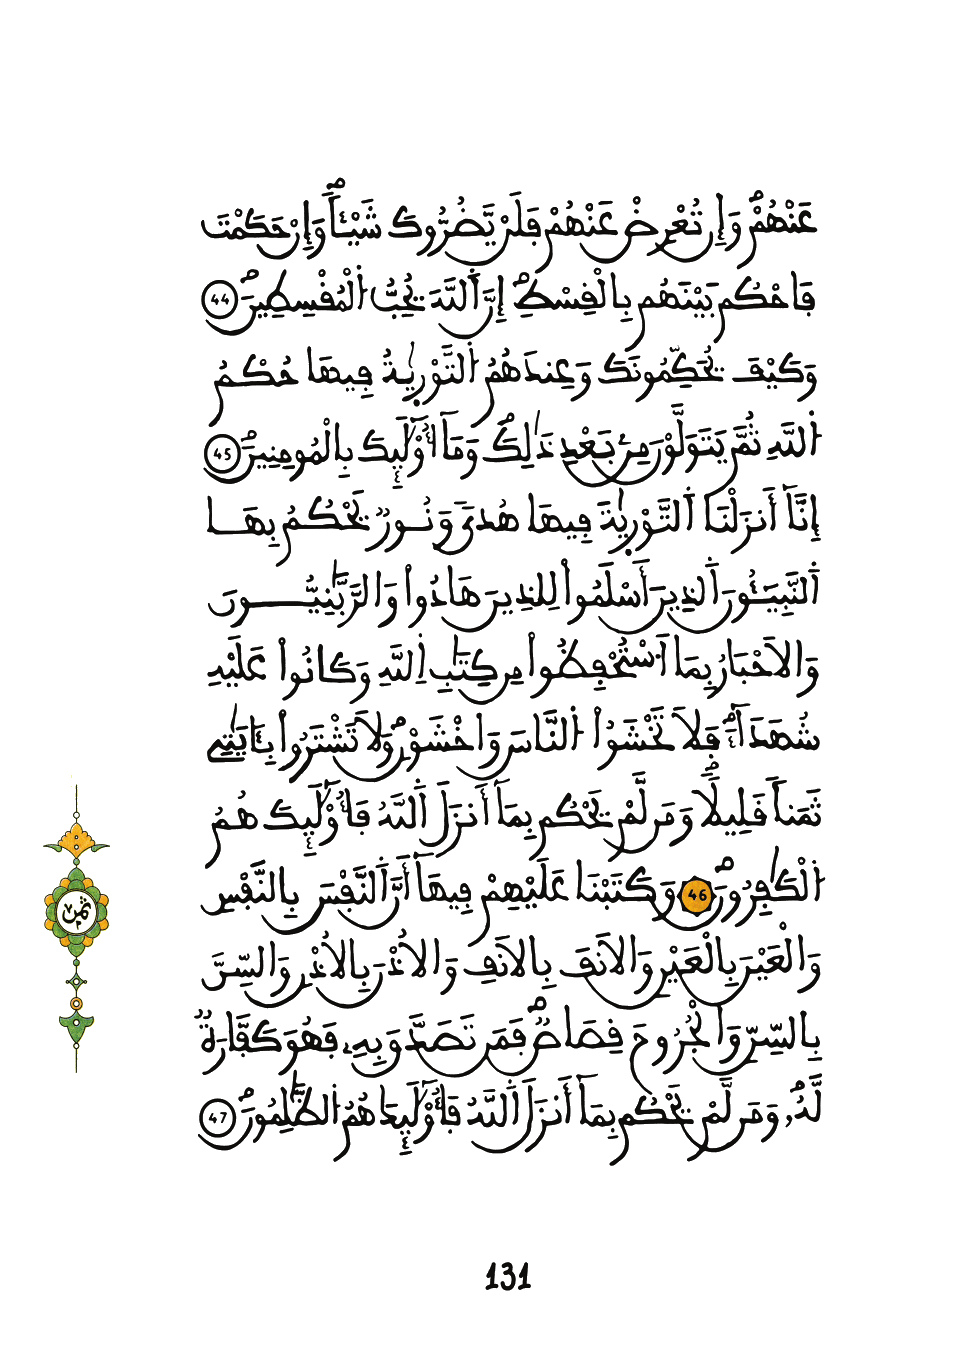 عَنْهُمْ وَإِن تُعْرِضْ عَنْهُمْ فَلَنْ يَّضُرُّوكَ شَيْـٔاً وَإِنْ حَكَمْتَ
فَاحْكُم بَيْنَهُم بِالْقِسْطِ إِنَّ اَ۬للَّهَ يُحِبُّ اُ۬لْمُقْسِطِينَ 44
وَكَيْفَ يُحَكِّمُونَكَ وَعِندَهُمُ اُ۬لتَّوْر۪يٰةُ فِيهَا حُكْمُ
اُ۬للَّهِ ثُمَّ يَتَوَلَّوْنَ مِنۢ بَعْدِ ذَٰلِكَ وَمَآ أُوْلَٰٓئِكَ بِالْمُومِنِينَ 45
إِنَّآ أَنزَلْنَا اَ۬لتَّوْر۪يٰةَ فِيهَا هُدىٗ وَنُورٞ يَحْكُمُ بِهَا
اَ۬لنَّبِيٓـُٔونَ اَ۬لذِينَ أَسْلَمُواْ لِلذِينَ هَادُواْ وَالرَّبَّٰنِيُّونَ
وَالَاحْبَارُ بِمَا اَ۟سْتُحْفِظُواْ مِن كِتَٰبِ اِ۬للَّهِ وَكَانُواْ عَلَيْهِ
شُهَدَآءَ فَلَا تَخْشَوُاْ اُ۬لنَّاسَ وَاخْشَوْنِ وَلَا تَشْتَرُواْ بِـَٔايَٰتِے
ثَمَناٗ قَلِيلاٗ وَمَن لَّمْ يَحْكُم بِمَآ أَنزَلَ اَ۬للَّهُ فَأُوْلَٰٓئِكَ هُمُ
اُ۬لْكَٰفِرُونَ 46 وَكَتَبْنَا عَلَيْهِمْ فِيهَآ أَنَّ اَ۬لنَّفْسَ بِالنَّفْسِ
وَالْعَيْنَ بِالْعَيْنِ وَالَانفَ بِالَانفِ وَالُاذْنَ بِالُاذْنِ وَالسِّنَّ
بِالسِّنِّ وَالْجُرُوحَ قِصَاصٞ فَمَن تَصَدَّقَ بِهِۦ فَهُوَ كَفَّارَةٞ
لَّهُۥ وَمَن لَّمْ يَحْكُم بِمَآ أَنزَلَ اَ۬للَّهُ فَأُوْلَٰٓئِكَ هُمُ اُ۬لظَّٰلِمُونَ 47
ثمن
131